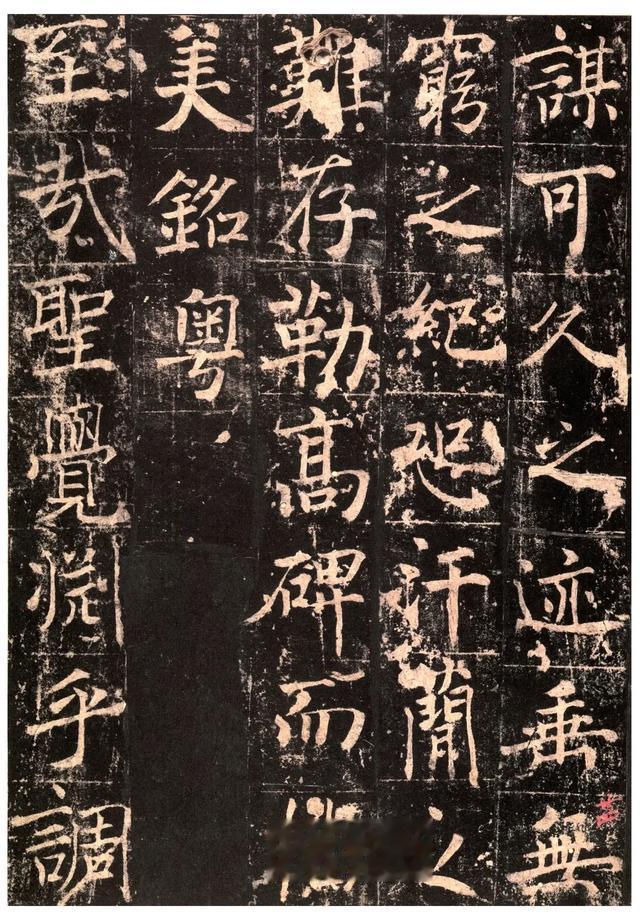 謀可久之迹垂無
窮之紀恐汗簡之
難存勒髙碑而
美銘粤
至哉聖覺淵乎調